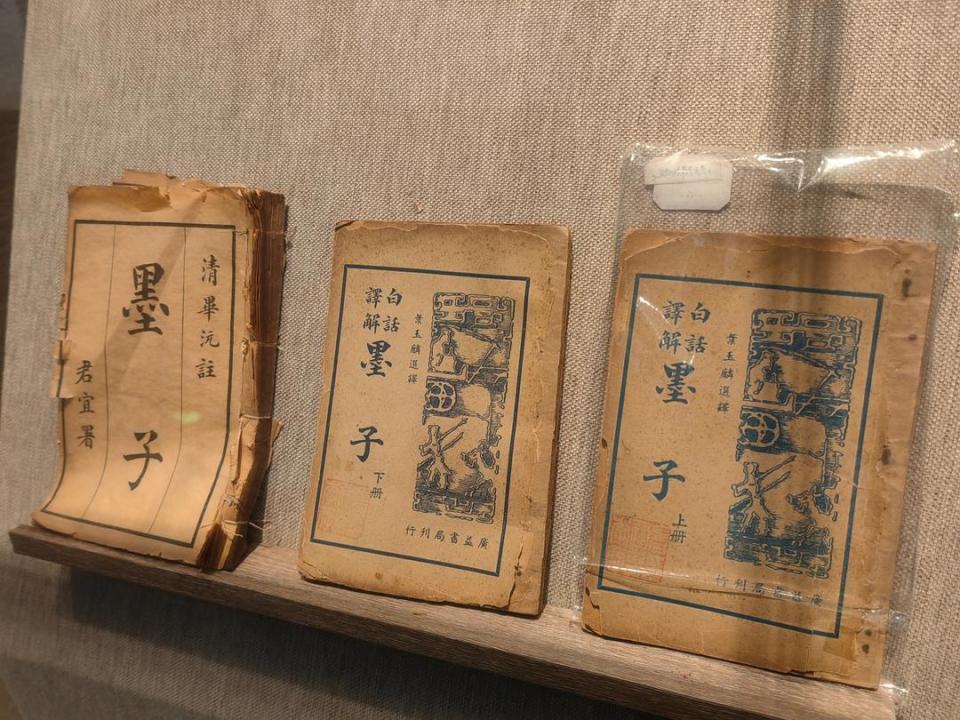 清畢沅註
墨子
君宜署
白話
譯解
墨子
葉玉麟選譯
下冊
廣益書局刊行
白話
譯解
墨子
葉玉麟選譯
上冊
廣益書局刊行